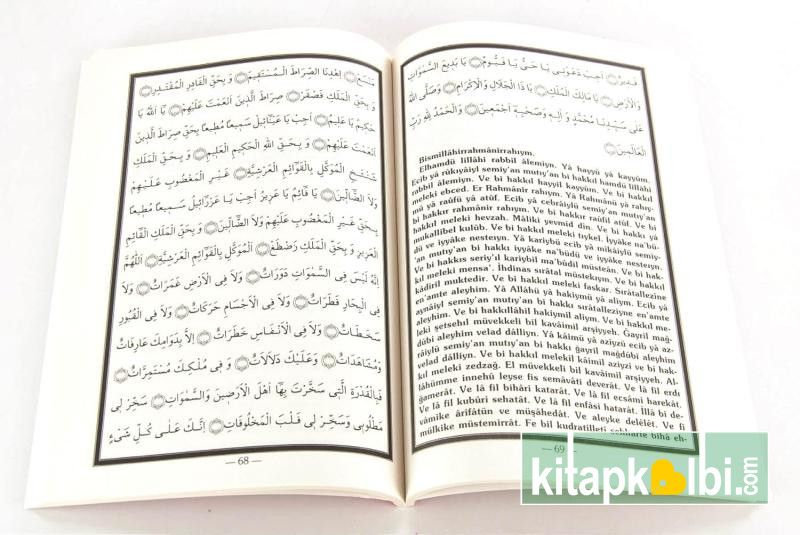 مَنْسَخٍ اِهْدِنَا الصِّرَاطَ الْمُسْتَقِيمَ وَ بِحَقِّ الْقَادِرِ الْمُقْتَدِرِ
وَ بِحَقِّ الْمَلَكِ فَصْقَرٍ صِرَاطَ الَّذِينَ اَنْعَمْتَ عَلَيْهِمْ يَا اَللهُ يَا
حَكِيمُ يَا عَلِيمُ اَجِبْ يَا عَيْنَائِيلُ سَمِيعًا مُطِيعًا بِحَقِّ صِرَاطَ الَّذِينَ
اَنْعَمْتَ عَلَيْهِمْ وَ بِحَقِّ اللهِ الْحَكِيمِ الْعَلِيمِ وَ بِحَقِّ الْمَلَكِ
الْمُوَكَّلِ بِالْقَوَائِمِ الْعَرْشِيَّةِ غَيْرِ الْمَغْضُوبِ عَلَيْهِمْ
وَلاَ الضَّالِّينَ يَا قَائِمُ يَا عَزِيزُ اَجِبْ يَا عَزْرَائِيلُ سَمِيعًا مُطِيعًا
بِحَقِّ غَيْرِ الْمَغْضُوبِ عَلَيْهِمْ وَلاَ الضَّالِّينَ وَ بِحَقِّ الْمَلِكِ الْقَائِمِ
الْعَزِيزِ وَ بِحَقِّ الْمَلَكِ اَلْمُوَكَّلِ بِالْقَوَائِمِ الْعَرْشِيَّةِ اَللّٰهُمَّ
اِنَّهُ لَيْسَ فِى السَّمٰوَاتِ دَوَرَاتٌ وَلاَ فِى الْاَرْضِ غَمَرَاتٌ وَلاَ
فِى الْبِحَارِ قَطَرَاتٌ وَلاَ فِى الْاَجْسَامِ حَرَكَاتٌ وَلاَ فِى الْقُبُورِ
وَلاَ فِى الْاَنْفَاسِ خَطَرَاتٌ اِلاَّ بِدَوَامِكَ عَارِفَاتٌ
وَمُشَاهَدَاتٌ وَعَلَيْكَ دَلاَلاَتٌ وَ فِى مُلْكِكَ مُسْتَمِرَّاتٌ
فَبِالْقُدْرَةِ الَّتِى سَخَّرْتَ بِهَا اَهْلَ الْاَرَضِينَ وَالسَّمٰوَاتِ سَخِّرْ لِى
مَطْلُوبِى وَسَخِّرْ لِى قَلْبَ الْمَخْلُوقَاتِ اِنَّكَ عَلٰى كُلِّ شَىْءٍ
— 68 —
قَدِيرٌ اَجِبْ دَعْوَتِى يَا حَىُّ يَا قَيُّومُ يَا بَدِيعَ السَّمٰوَاتِ
وَالْاَرْضِ يَا مَالِكَ الْمُلْكِ يَا ذَا الْجَلاَلِ وَالْاِكْرَامِ وَصَلَّى اللهُ
عَلٰى سَيِّدِنَا مُحَمَّدٍ وَ اٰلِهِ وَصَحْبِهِ اَجْمَعِينَ وَالْحَمْدُ لِلّٰهِ رَبِّ
الْعَالَمِينَ
Bismillâhirrahmânirrahıym.
Elhamdü lillâhi rabbil âlemiyn. Yâ hayyü yâ kayyûm.
Ecib yâ rûkıyâiyl semiy'an mutıy'an bi hakkıl hamdü lillâhi
rabbil âlemiyn. Ve bi hakkıl hayyil kayyûm. Ve bi hakkıl
meleki ebced. Er Rahmânir rahıym. Yâ Rahmânü yâ rahıy-
mü yâ raûfü yâ atûf. Ecib yâ cebrâiylü semiy'an mutıy'an
bi hakkır rahmânir rahıym. Ve bi hakkır raûfil atûf. Ve bi
hakkıl meleki hevzah. Mâliki yevmid din. Ve bi hakkı yâ
mukallibel kulûb. Ve bi hakkıl meleki tıykel. İyyâke na'bü-
dü ve iyyâke nesteıyn. Yâ kariybü ecib yâ mikâiylü semiy-
'an mutıy'an bi hakkı iyyâke na'büdü ve iyyâke nesteıyn.
Ve bi hakkıs seriy'ıl kariybil ma'bûdil müsteân. Ve bi hak-
kıl meleki mensa'. İhdinas sırâtal müstekıym. Ve bi hakkıl
kâdiril muktedir. Ve bi hakkıl meleki faskar. Sıratallezine
en'amte aleyhim. Yâ Allâhü yâ hakiymü yâ aliym. Ecib yâ
aynâiyl semiy'an mutıy'an bi hakkı sırâtalleziyne en'amte
aleyhim. Ve bi hakkıllâhil hakiymil aliym. Ve bi hakkıl me-
leki şetsehıl müvekkeli bil kavâimil arşiyyeh. Ğayril mağ-
dûbi aleyhim velad dâlliyn. Yâ kâimü yâ aziyzü ecib yâ az-
râiylü semiy'an mutıy'an bi hakkı ğayril mağdûbi aleyhim
velad dâlliyn. Ve bi hakkıl melekil kâimil aziyzi ve bi hak-
kıl meleki zedzağ. El müvekkeli bil kavâimil arşiyyeh. Al-
lâhümme innehû leyse fis semâvâti deverât. Ve lâ fil erdı
ğamerât. Ve lâ fil bihâri katarât. Ve lâ fil ecsâmi harekât.
Ve lâ fil kubûri sehatât. Ve lâ fil enfâsi hatarât. İllâ bi de-
vâmike ârifâtün ve müşâhedât. Ve aleyke delêlât. Ve fi
mülkike müstemirrât. Fe bil kudratilletî sehharte bihâ eh-
— 69 —
kitapkalbi.com